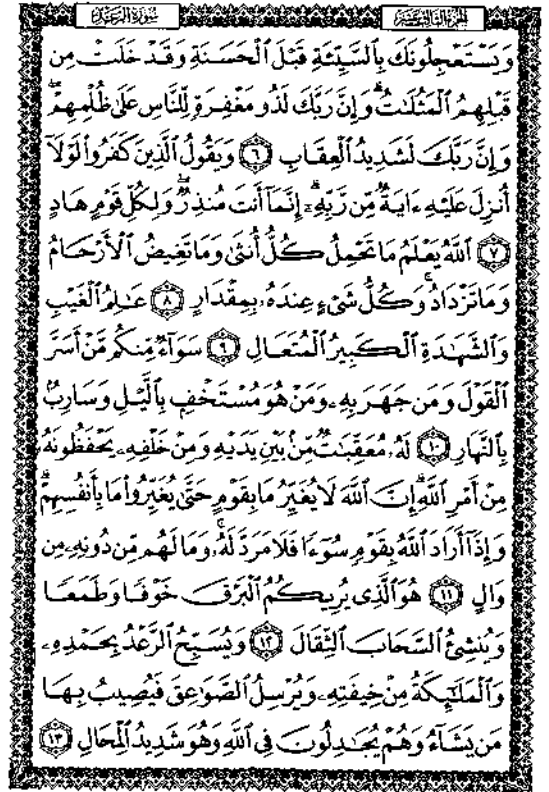 الجزء الثالث عشر
سورة الرعد
وَيَسْتَعْجِلُونَكَ بِٱلسَّيِّئَةِ قَبْلَ ٱلْحَسَنَةِ وَقَدْ خَلَتْ مِن
قَبْلِهِمُ ٱلْمَثُلَٰتُ ۗ وَإِنَّ رَبَّكَ لَذُو مَغْفِرَةٍ لِّلنَّاسِ عَلَىٰ ظُلْمِهِمْ ۖ
وَإِنَّ رَبَّكَ لَشَدِيدُ ٱلْعِقَابِ ٦ وَيَقُولُ ٱلَّذِينَ كَفَرُوا۟ لَوْلَآ
أُنزِلَ عَلَيْهِ ءَايَةٌ مِّن رَّبِّهِۦٓ ۗ إِنَّمَآ أَنتَ مُنذِرٌ ۖ وَلِكُلِّ قَوْمٍ هَادٍ
٧ ٱللَّهُ يَعْلَمُ مَا تَحْمِلُ كُلُّ أُنثَىٰ وَمَا تَغِيضُ ٱلْأَرْحَامُ
وَمَا تَزْدَادُ ۖ وَكُلُّ شَىْءٍ عِندَهُۥ بِمِقْدَارٍ ٨ عَٰلِمُ ٱلْغَيْبِ
وَٱلشَّهَٰدَةِ ٱلْكَبِيرُ ٱلْمُتَعَالِ ٩ سَوَآءٌ مِّنكُم مَّنْ أَسَرَّ
ٱلْقَوْلَ وَمَن جَهَرَ بِهِۦ وَمَنْ هُوَ مُسْتَخْفٍۭ بِٱلَّيْلِ وَسَارِبٌۢ
بِٱلنَّهَارِ ١٠ لَهُۥ مُعَقِّبَٰتٌ مِّنۢ بَيْنِ يَدَيْهِ وَمِنْ خَلْفِهِۦ يَحْفَظُونَهُۥ
مِنْ أَمْرِ ٱللَّهِ ۗ إِنَّ ٱللَّهَ لَا يُغَيِّرُ مَا بِقَوْمٍ حَتَّىٰ يُغَيِّرُوا۟ مَا بِأَنفُسِهِمْ ۗ
وَإِذَآ أَرَادَ ٱللَّهُ بِقَوْمٍ سُوٓءًا فَلَا مَرَدَّ لَهُۥ ۚ وَمَا لَهُم مِّن دُونِهِۦ مِن
وَالٍ ١١ هُوَ ٱلَّذِى يُرِيكُمُ ٱلْبَرْقَ خَوْفًا وَطَمَعًا
وَيُنشِئُ ٱلسَّحَابَ ٱلثِّقَالَ ١٢ وَيُسَبِّحُ ٱلرَّعْدُ بِحَمْدِهِۦ
وَٱلْمَلَٰٓئِكَةُ مِنْ خِيفَتِهِۦ وَيُرْسِلُ ٱلصَّوَٰعِقَ فَيُصِيبُ بِهَا
مَن يَشَآءُ وَهُمْ يُجَٰدِلُونَ فِى ٱللَّهِ وَهُوَ شَدِيدُ ٱلْمِحَالِ ١٣